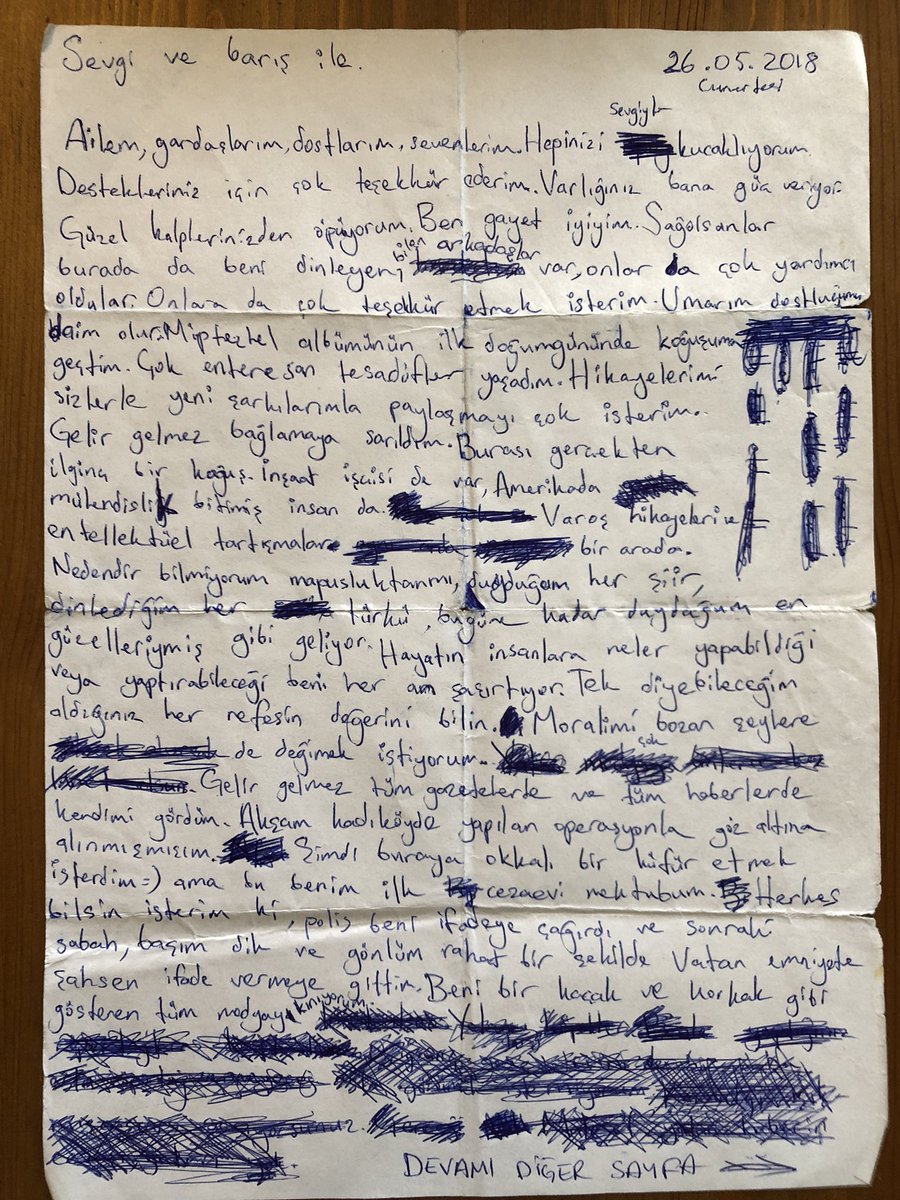 Sevgi ve barış ile.
26.05.2018
Cumartesi
Ailem, gardaşlarım, dostlarım, sevenlerim. Hepinizi sevgiyle kucaklıyorum.
Destekleriniz için çok teşekkür ederim. Varlığınız bana güç veriyor.
Güzel kalplerinizden öpüyorum. Ben gayet iyiyim. Sağolsunlar
burada da beni dinleyen, bilen arkadaşlar var, onlar da çok yardımcı
oldular. Onlara da çok teşekkür etmek isterim. Umarım dostluğumuz
daim olur. Müptezhel albümünün ilk doğumgününde koğuşuma
geçtim. Çok enteresan tesadüfler yaşadım. Hikayelerimi
sizlerle yeni şarkılarımla paylaşmayı çok isterim.
Gelir gelmez bağlamaya sarıldım. Burası gerçekten
ilginç bir koğuş. İnşaat işçisi de var, Amerikada
mühendislik bitimiş insan da. Varoş hikayeleri ve
entellektüel tartışmalar bir arada.
Nedendir bilmiyorum mapusluktanmı, duyduğum her şiir,
dinlediğim her türkü, bugüne kadar duyduğum en
güzelleriymiş gibi geliyor. Hayatın insanlara neler yapabildiği
veya yaptırabileceği beni her an şaşırtıyor. Tek diyebileceğim
aldığınız her nefesin değerini bilin. Moralimi bozan şeylere
de değimek istiyorum. çok
Gelir gelmez tüm gazetelerde ve tüm haberlerde
kendimi gördüm. Akşam kadıköyde yapılan operasyonla göz altına
alınmışmışım. Şimdi buraya okkalı bir küfür etmek
isterdim =) ama bu benim ilk cezaevi mektubum. Herkes
bilsin isterim ki, polis beni ifadeye çağırdı ve sonraki
sabah, başım dik ve gönlüm rahat bir şekilde Vatan emniyete
şahsen ifade vermeye gittim. Beni bir kaçak ve korkak gibi
gösteren tüm medyayı kınıyorum
DEVAMI DİĞER SAYFA →